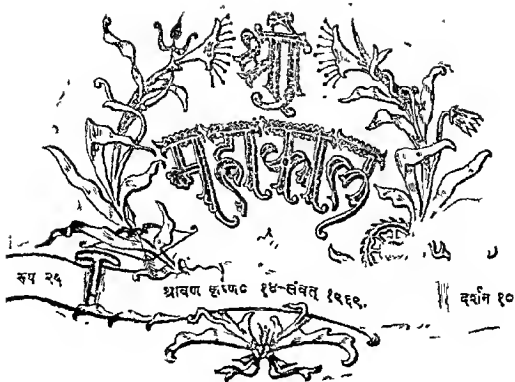 श्री
महाकाल
रूप २५ श्रावण कृष्ण० १४ संवत् १९६९. दर्शन १०